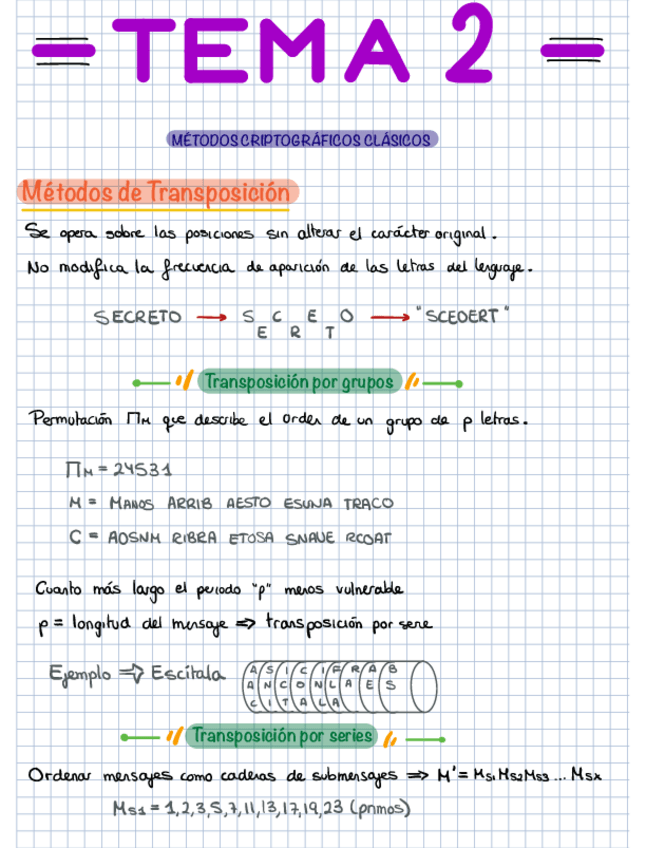 = TEMA 2 =
MÉTODOS CRIPTOGRÁFICOS CLÁSICOS
Métodos de Transposición
Se opera sobre las posiciones sin alterar el carácter original.
No modifica la frecuencia de aparición de las letras del lenguaje.
SECRETO → S C E O → "SCEOERT"
E R T
Transposición por grupos
Permutación ΠM que describe el orden de un grupo de p letras.
ΠM = 24531
M = MANOS ARRIB AESTO ESUNA TRACO
C = AOSNM RIBRA ETOSA SNAUE RCOAT
Cuanto más largo el periodo "p" menos vulnerable
p = longitud del mensaje ⇒ transposición por serie
Ejemplo ⇒ Escítala
A S I C I F R A B
A N C O N L A E S
C I T A L A
Transposición por series
Ordenar mensajes como cadenas de submensajes ⇒ M' = MS1 MS2 MS3 ... MSx
MS1 = 1,2,3,5,7,11,13,17,19,23 (primos)